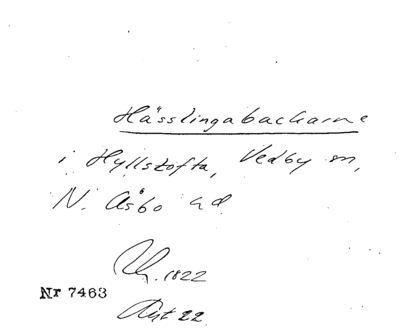 Hässlingabackarne
i Hyllstofta, Vedby sn,
N. Åsbo hd
1822
Nr 7463
22